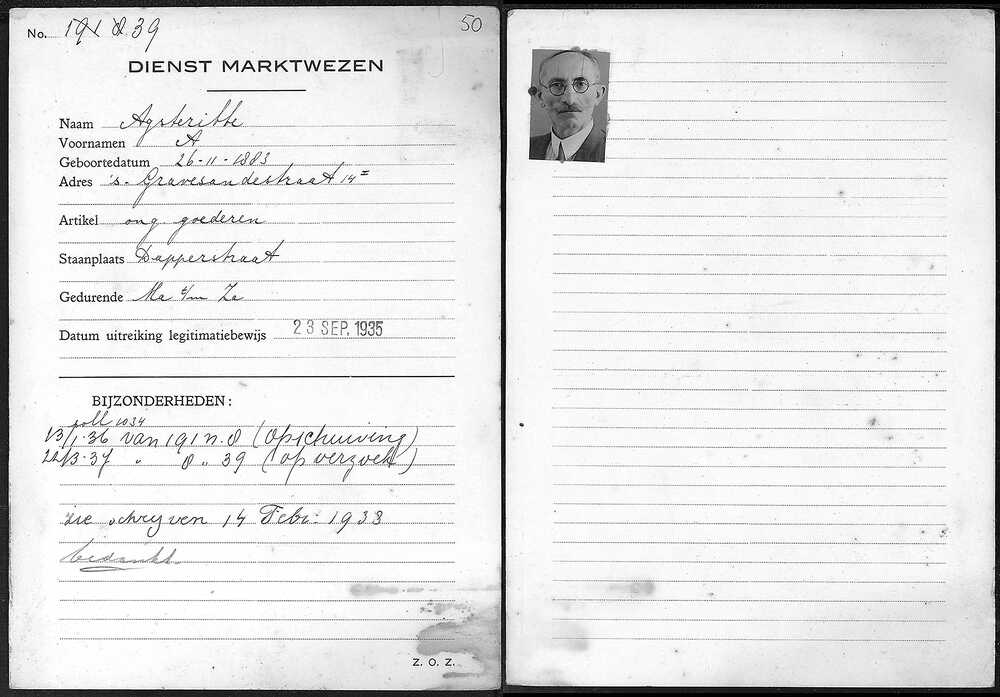 No. 191 8 39
50
DIENST MARKTWEZEN
Naam Agsteribbe
Voornamen A
Geboortedatum 26-11-1883
Adres 's-Gravesandestraat 14 II
Artikel ong goederen
Staanplaats Dapperstraat
Gedurende Ma t/m Za
Datum uitreiking legitimatiebewijs 23 SEP. 1935
BIJZONDERHEDEN:
soll 1034
13/1-36 van 191 n. 8 (opschuiving)
22/3-37 " 8 " 39 (op verzoek)
zie schrijven 14 Febr. 1938
bedankt
Z. O. Z.